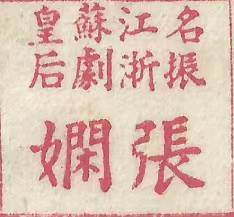 名振
江浙
蘇劇
皇后
張嫻